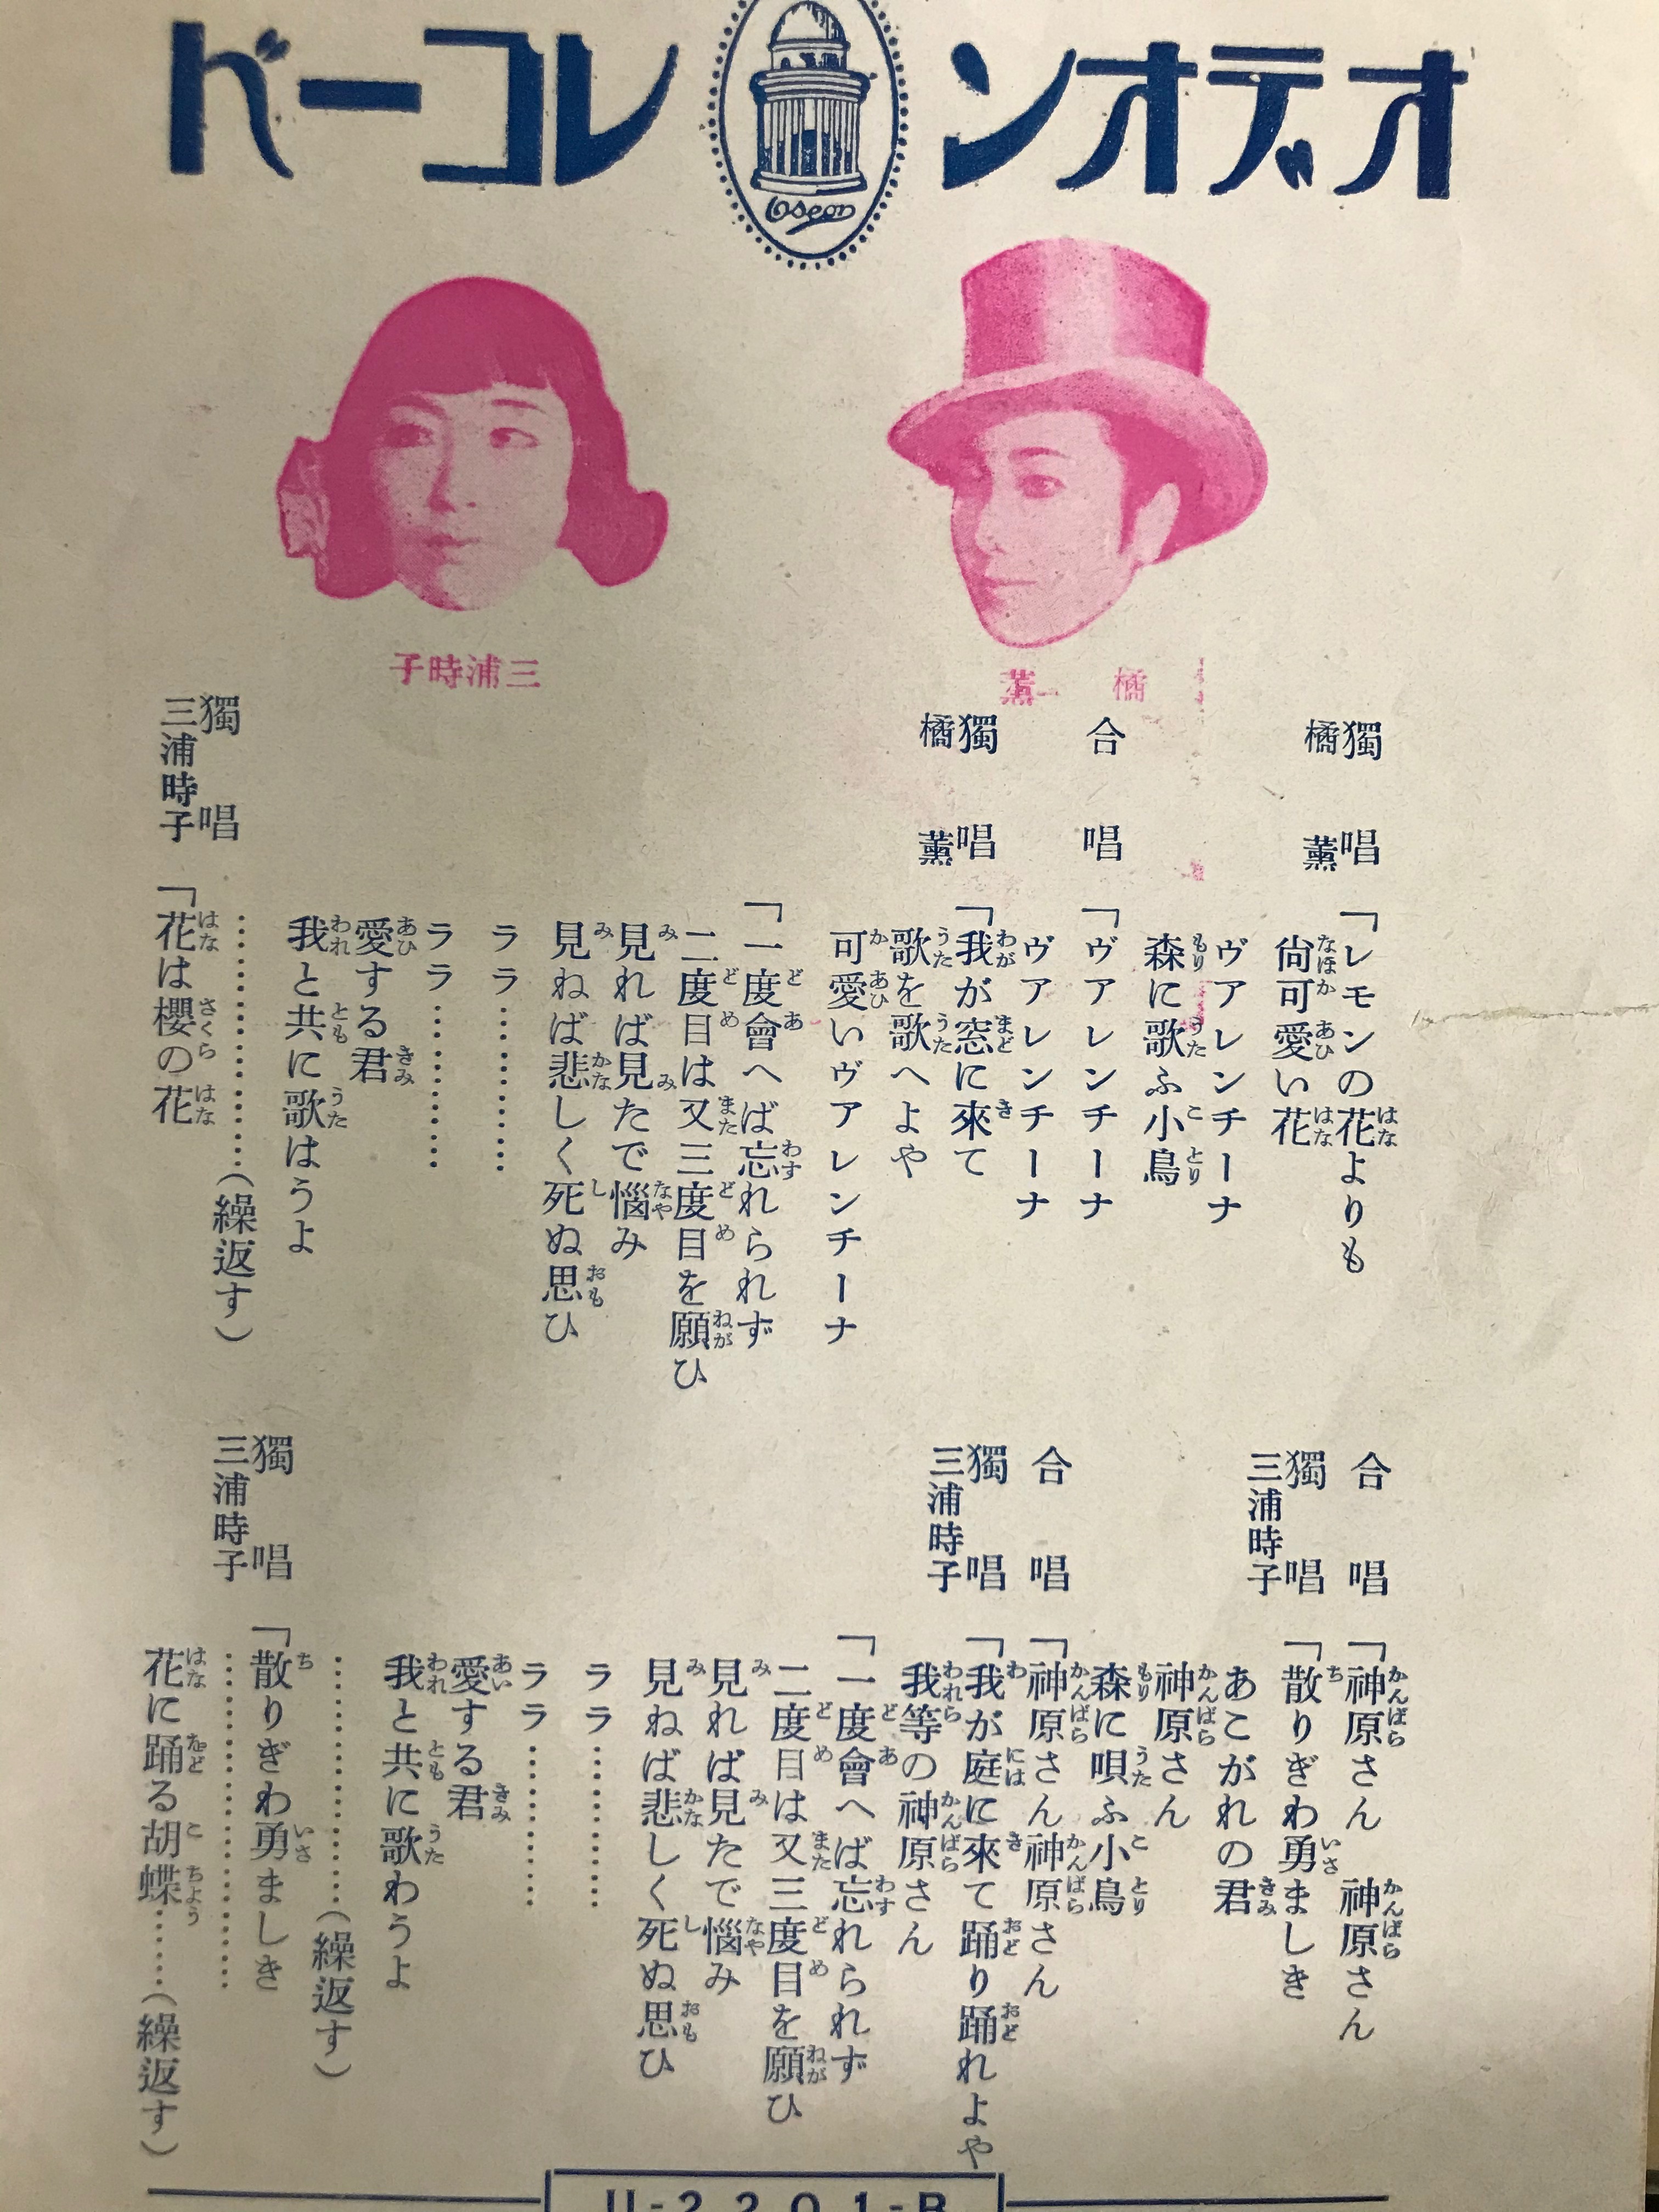 オデオンレコード
Odeon
橘薫
三浦時子
獨唱
橘薫
「レモンの花よりも
尙可愛い花
ヴアレンチーナ
森に歌ふ小鳥
合唱
「ヴアレンチーナ
ヴアレンチーナ
獨唱
橘薫
「我が窓に來て
歌を歌へよや
可愛いヴアレンチーナ
「一度會へば忘れられず
二度目は又三度目を願ひ
見れば見たで惱み
見ねば悲しく死ぬ思ひ
ララ…………
ララ…………
愛する君
我と共に歌はうよ
…………………(繰返す)
獨唱
三浦時子
「花は櫻の花
合唱
「神原さん 神原さん
獨唱
三浦時子
「散りぎわ勇ましき
あこがれの君
神原さん
森に唄ふ小鳥
合唱
「神原さん神原さん
獨唱
三浦時子
「我が庭に來て踊り踊れよや
我等の神原さん
「一度會へば忘れられず
二度目は又三度目を願ひ
見れば見たで惱み
見ねば悲しく死ぬ思ひ
ララ…………
ララ…………
愛する君
我と共に歌わうよ
…………………(繰返す)
獨唱
三浦時子
「散りぎわ勇ましき
………………………
花に踊る胡蝶……(繰返す)
U-2201-B